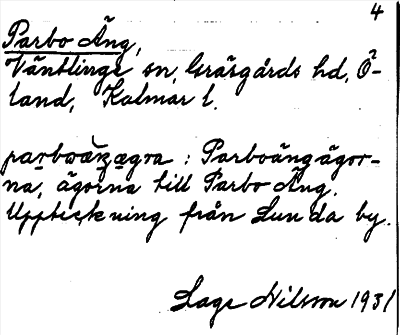 4
Parbo Äng,
Väntlinge sn, Gräsgårds hd, Ö-
land, Kalmar l.
: Parboängägor-
na, ägorna till Parbo Äng.
Uppteckning från Lunda by.
Lage Nilsson 1931